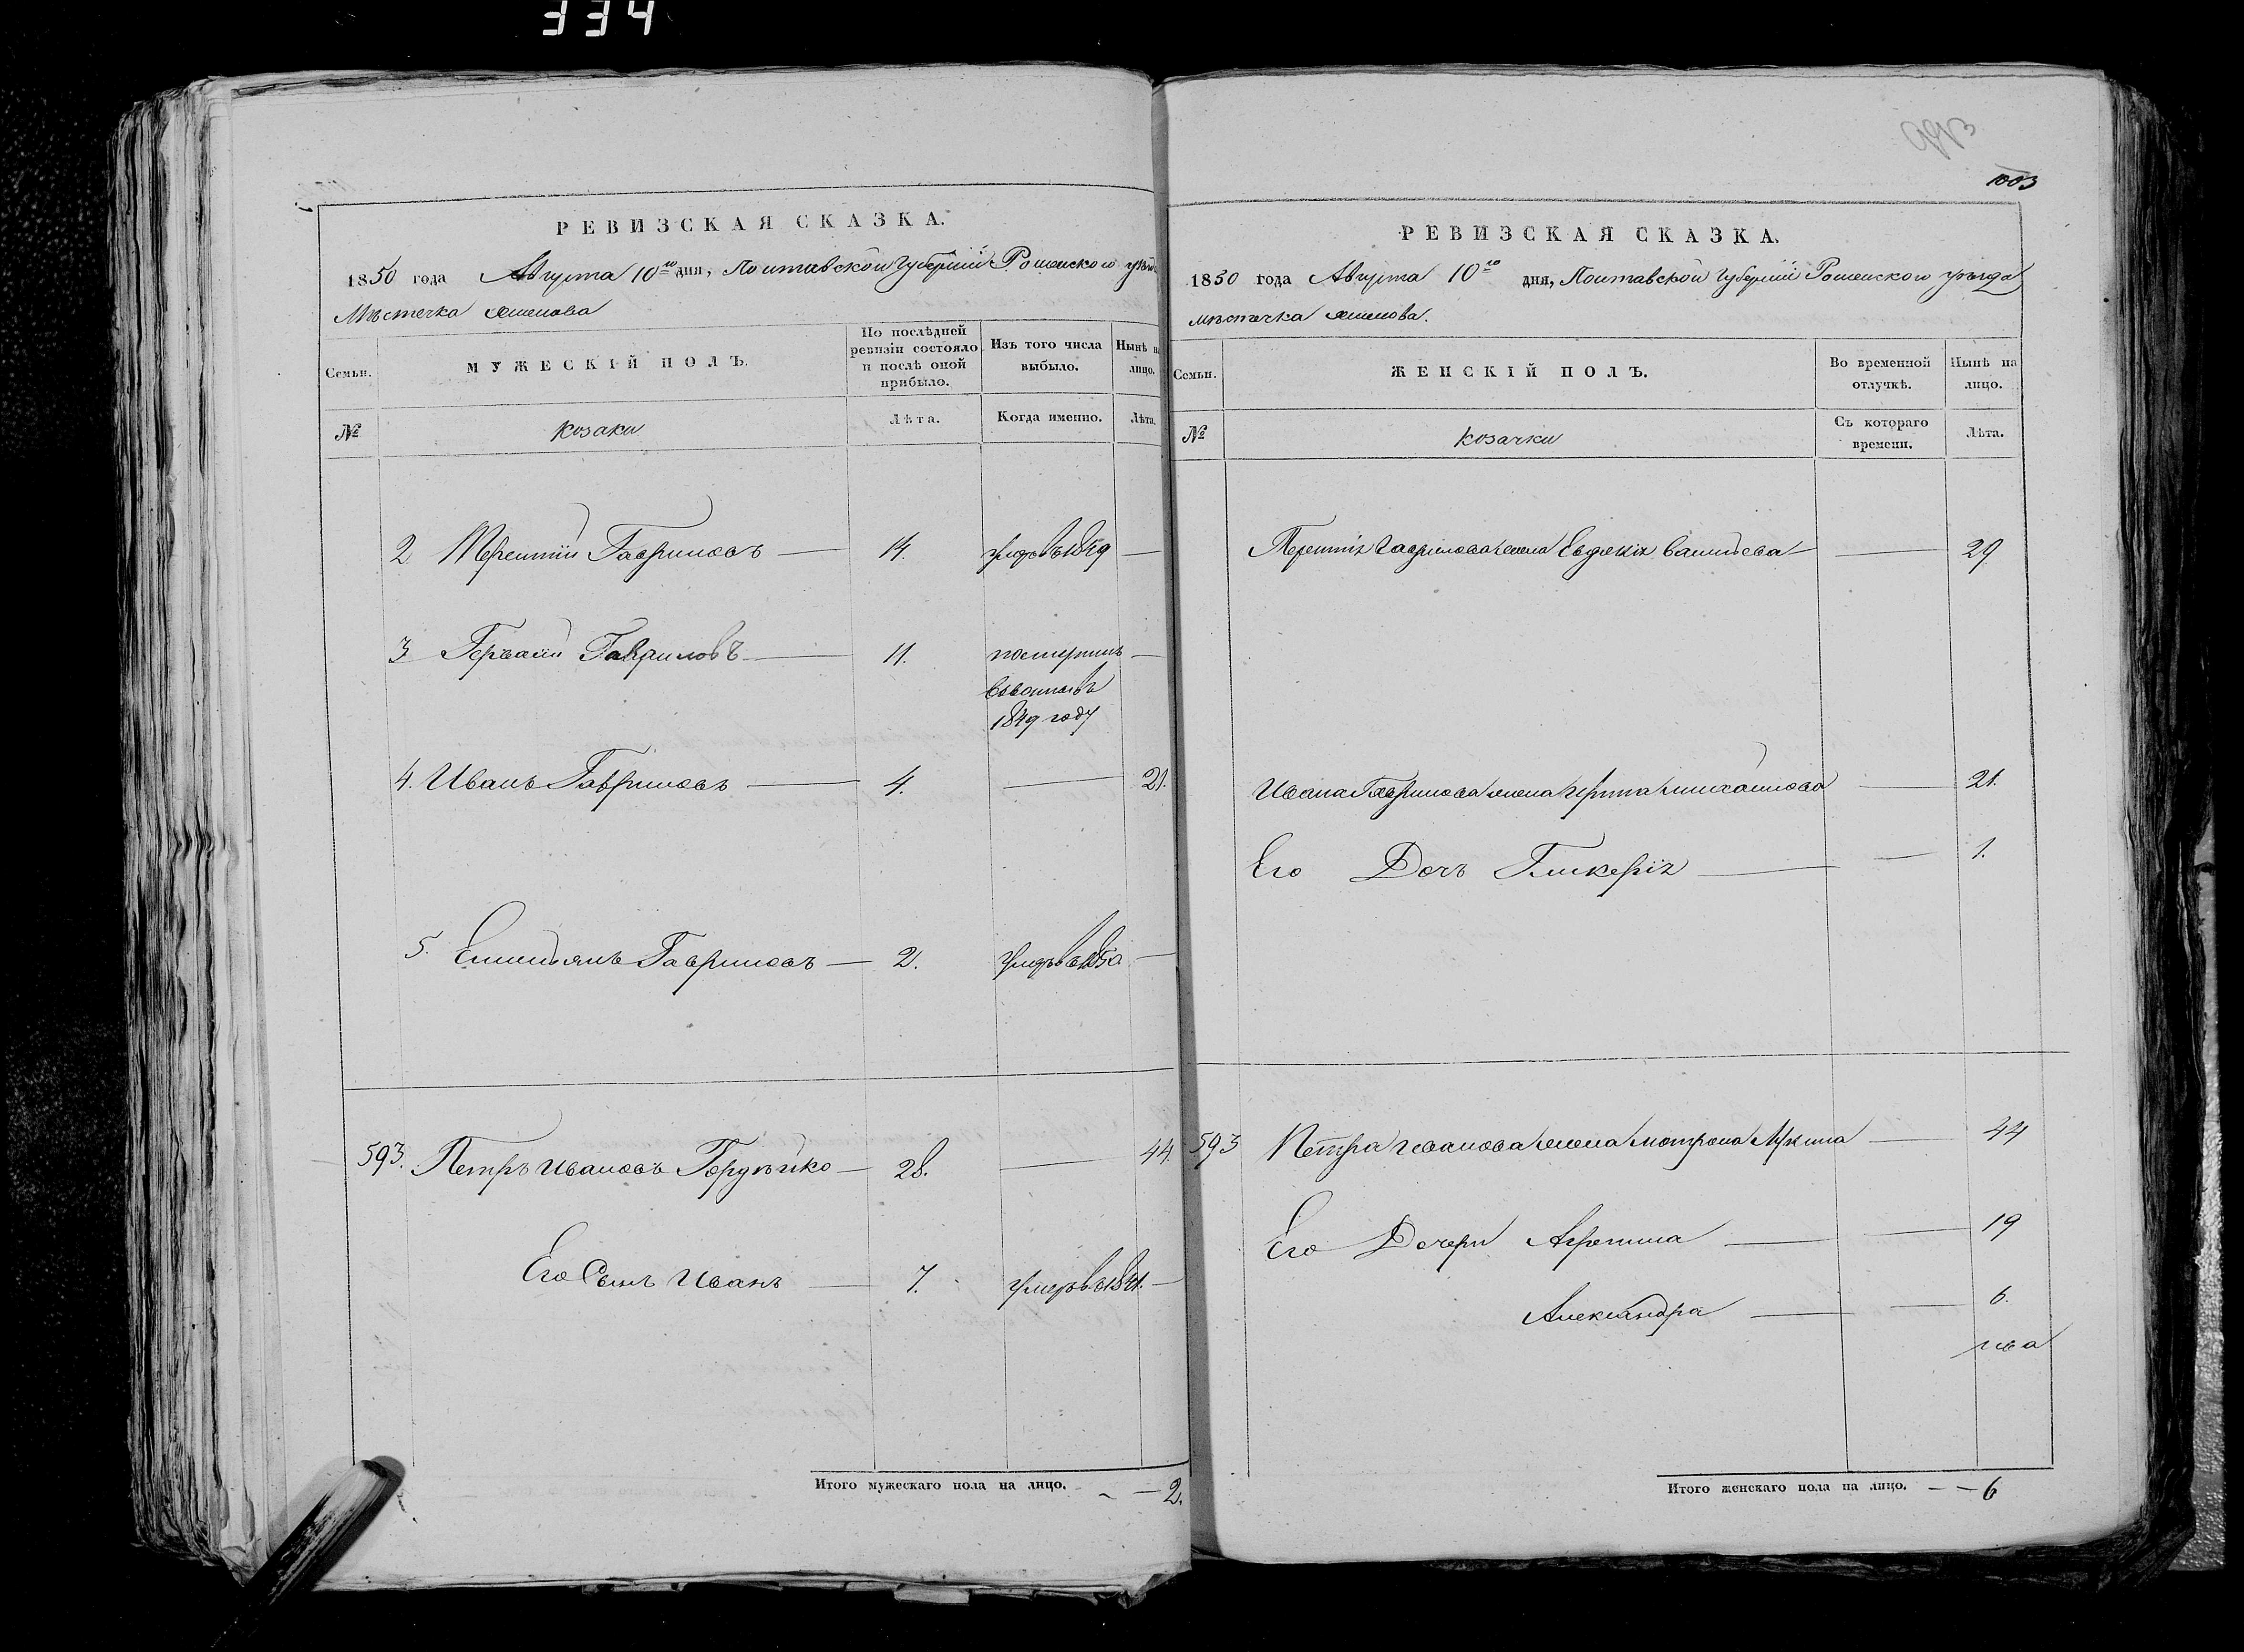 334
1003
РЕВИЗСКАЯ СКАЗКА.
1850 года Августа 10го дня, Полтавской Губерніи Роменского уѣзда
Мѣстечка Смелова
Семьи.
МУЖЕСКІЙ ПОЛЪ.
По послѣдней ревизіи состояло и послѣ оной прибыло.
Изъ того числа выбыло.
Нынѣ на лицо.
№
козаки
Лѣта.
Когда именно.
Лѣта.
2 Терентій Гавриловъ — 14. умеръ въ 1849 —
3 Гавриловъ — 11. поступилъ —
1849 году
4. Иванъ Гавриловъ — 4. — 21.
5. Емельянъ Гавриловъ — 2. умеръ въ —
593. Петръ Ивановъ — 28. — 44.
Его Сынъ Иванъ — 7. умеръ въ 1841. —
Итого мужескаго пола на лицо. — 2.
РЕВИЗСКАЯ СКАЗКА.
1850 года Августа 10го дня, Полтавской Губерніи Роменского уѣзда
мѣстечка Смелова.
Семьи.
ЖЕНСКІЙ ПОЛЪ.
Во временной отлучкѣ.
Нынѣ на лицо.
№
козачки
Съ котораго времени.
Лѣта.
Терентія Гаврилова жена Евдокія — 29
Ивана Гаврилова жена Михайлова — 21.
Его Дочь Гликерія — — 1.
593 Петра Иванова жена Мотрона — 44
Его Дочери Агрепина — — 19
Александра — — 6.
Итого женскаго пола на лицо. — — 6